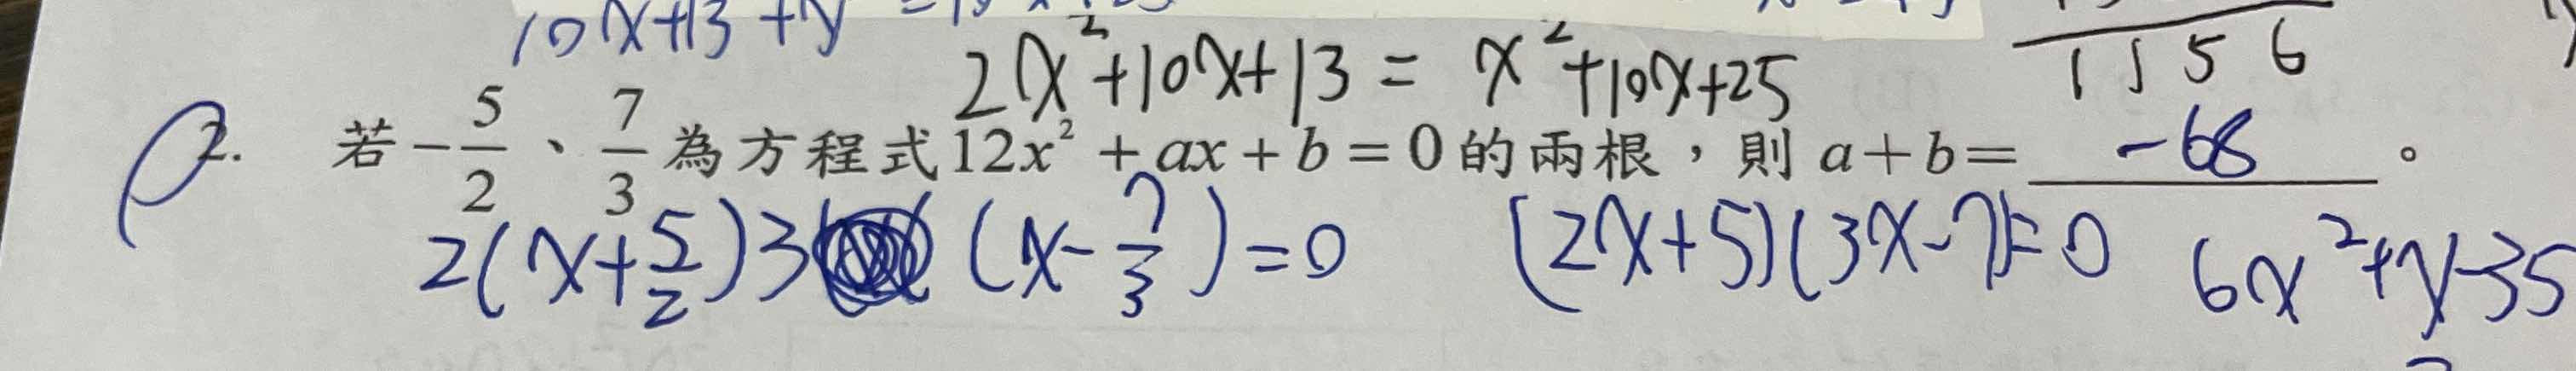 10x+13+y
2x²+10x+13 = x²+10x+25
1156
2. 若 -5/2、7/3 為方程式 12x² + ax + b = 0 的兩根，則 a+b= -68 。
2(x+5/2)3 (x-7/3)=0 (2x+5)(3x-7)=0 6x²+x-35